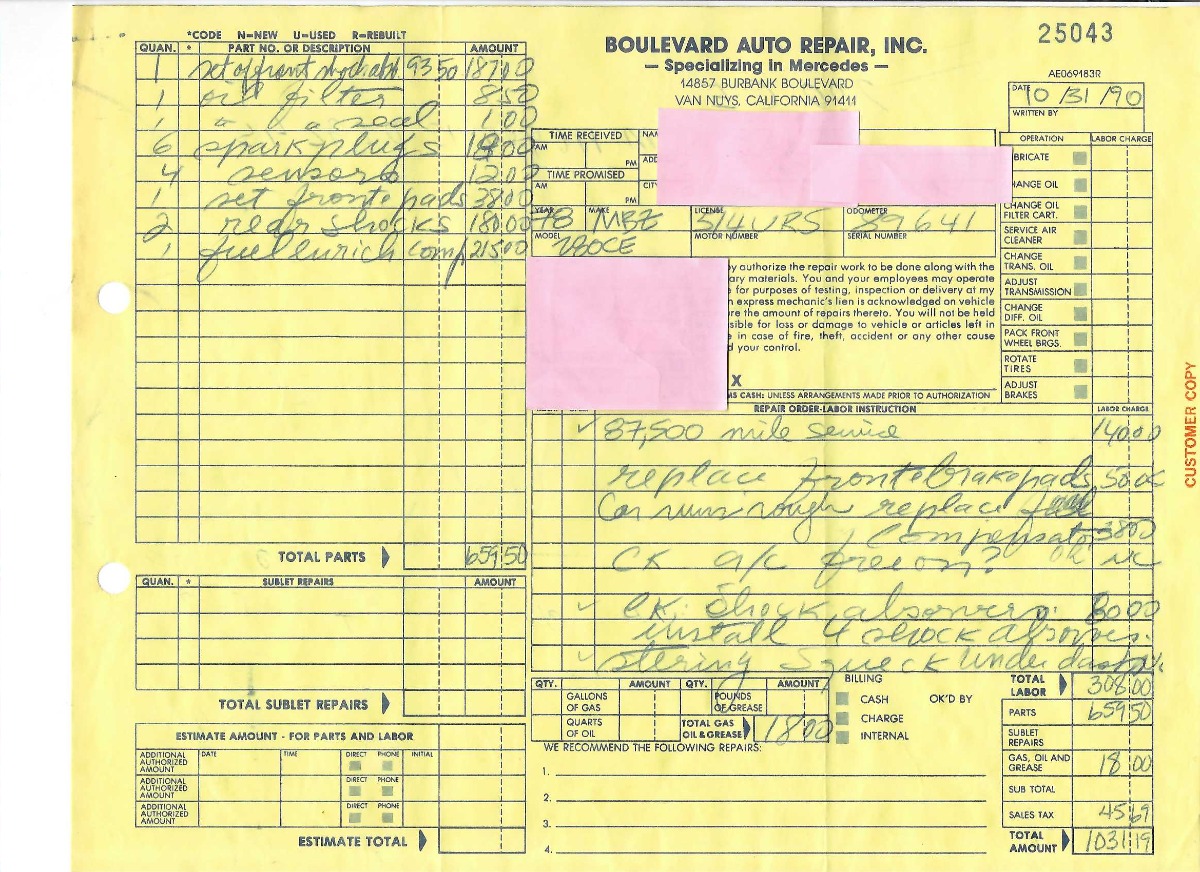 *CODE N=NEW U=USED R=REBUILT
25043
BOULEVARD AUTO REPAIR, INC.
— Specializing in Mercedes —
14857 BURBANK BOULEVARD
VAN NUYS, CALIFORNIA 91411
AE069183R
DATE 10/31/90
WRITTEN BY
QUAN. * PART NO. OR DESCRIPTION AMOUNT
1 set of front 93 50 187 00
1 oil filter 8 50
1 " " seal 1 00
6 spark plugs 18 00
4 sensors 12 00
1 set front pads 38 00
2 rear shocks 180 00
1 fuel enrich comp 215 00
TOTAL PARTS 659.50
QUAN. * SUBLET REPAIRS AMOUNT
TOTAL SUBLET REPAIRS
ESTIMATE AMOUNT - FOR PARTS AND LABOR
ADDITIONAL AUTHORIZED AMOUNT DATE TIME DIRECT PHONE INITIAL
ADDITIONAL AUTHORIZED AMOUNT DIRECT PHONE
ADDITIONAL AUTHORIZED AMOUNT DIRECT PHONE
ESTIMATE TOTAL
TIME RECEIVED
AM PM
TIME PROMISED
AM PM
NAM
ADD
CITY
YEAR 78 MAKE MBZ LICENSE 514URS ODOMETER 39641
MODEL 280CE MOTOR NUMBER SERIAL NUMBER
y authorize the repair work to be done along with the
ary materials. You and your employees may operate
e for purposes of testing, inspection or delivery at my
n express mechanic's lien is acknowledged on vehicle
re the amount of repairs thereto. You will not be held
sible for loss or damage to vehicle or articles left in
e in case of fire, theft, accident or any other cause
d your control.
X
MS CASH: UNLESS ARRANGEMENTS MADE PRIOR TO AUTHORIZATION
OPERATION LABOR CHARGE
BRICATE
HANGE OIL
CHANGE OIL FILTER CART.
SERVICE AIR CLEANER
CHANGE TRANS. OIL
ADJUST TRANSMISSION
CHANGE DIFF. OIL
PACK FRONT WHEEL BRGS.
ROTATE TIRES
ADJUST BRAKES
REPAIR ORDER-LABOR INSTRUCTION LABOR CHARGE
✓ 37,500 mile service 140.00
replace front brake pads 50 00
Car runs rough replace fuel
Compensator 38 00
CK a/c freon? ok NC
✓ CK. Shock absorvers. 80 00
install 4 shock absorves.
✓ stering Squeck under dash
QTY. AMOUNT QTY. AMOUNT
GALLONS OF GAS POUNDS OF GREASE
QUARTS OF OIL TOTAL GAS OIL & GREASE 18 00
BILLING
CASH OK'D BY
CHARGE
INTERNAL
WE RECOMMEND THE FOLLOWING REPAIRS:
1.
2.
3.
4.
TOTAL LABOR 308 00
PARTS 659 50
SUBLET REPAIRS
GAS, OIL AND GREASE 18 00
SUB TOTAL
SALES TAX 45 69
TOTAL AMOUNT 1031 19
CUSTOMER COPY